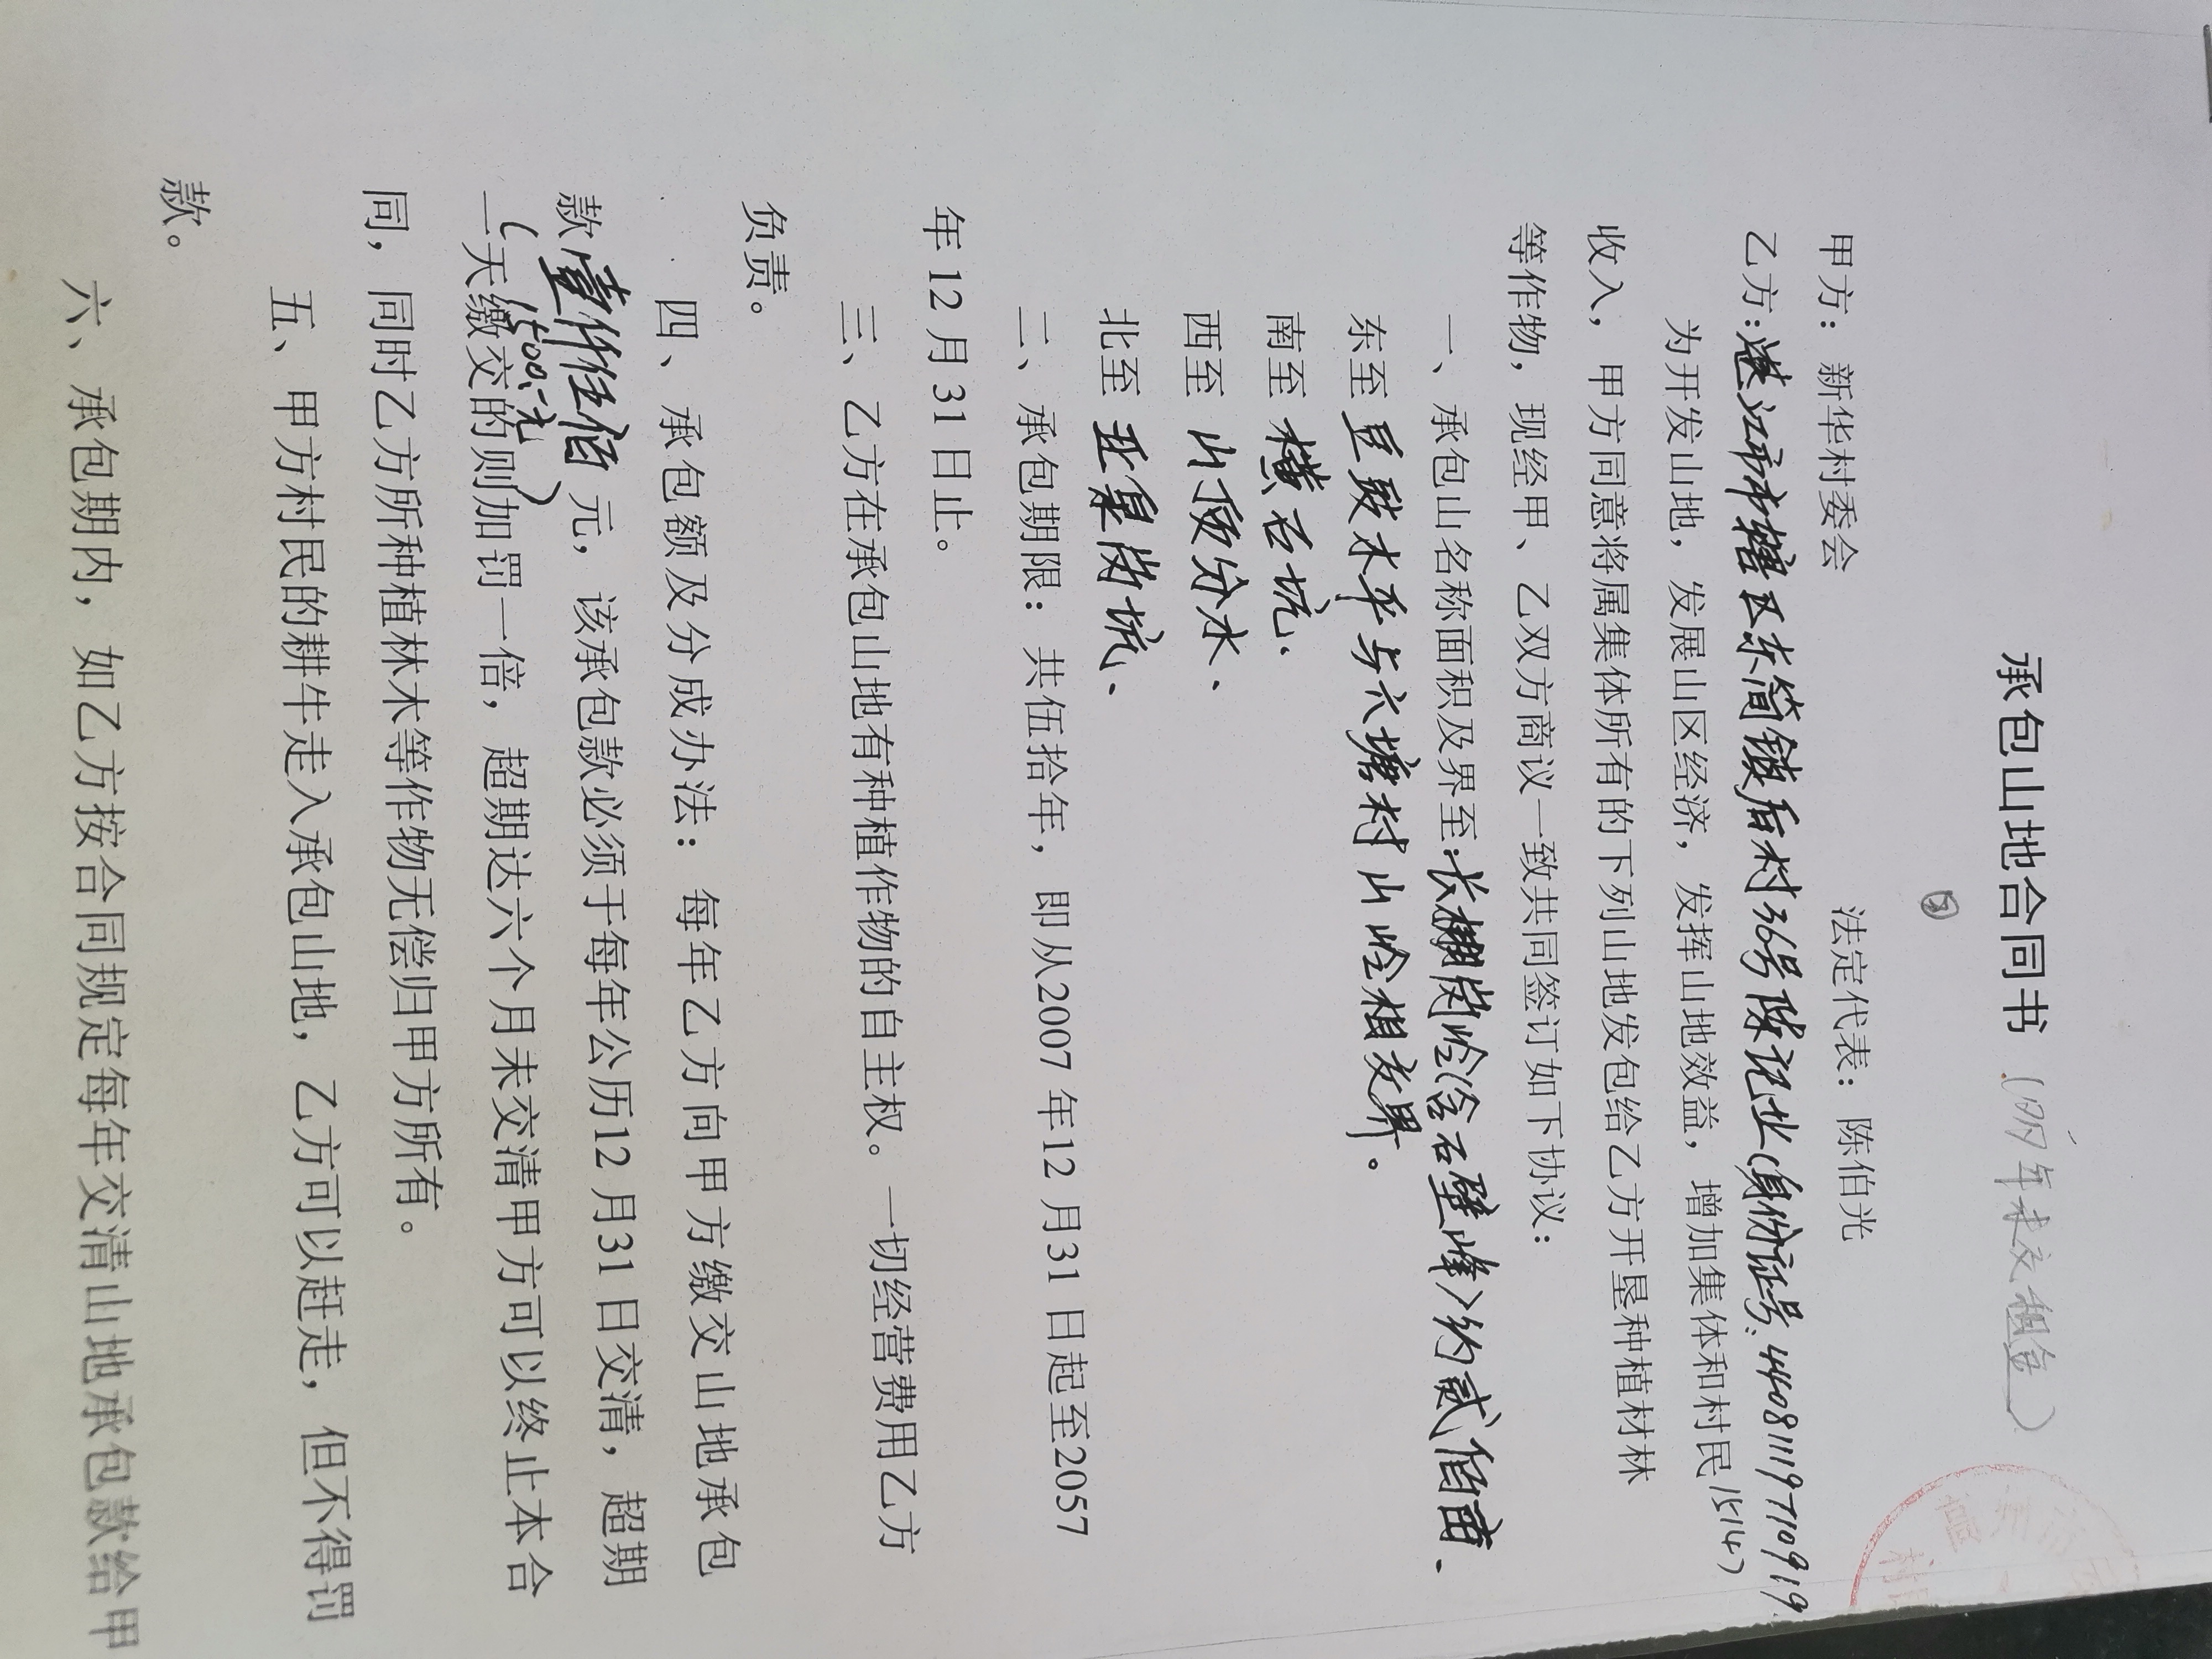 承包山地合同书（19年未交租金）
②
甲方：新华村委会 法定代表：陈伯光
乙方：湛江市市辖区东简镇后村36号陈记业（身份证号：44081119710919
1514）
为开发山地，发展山区经济，发挥山地效益，增加集体和村民
收入，甲方同意将属集体所有的下列山地发包给乙方开垦种植材林
等作物，现经甲、乙双方商议一致共同签订如下协议：
一、承包山名称面积及界至：长棚岗岭（含石壁峰）约贰佰亩、
东至豆豉水平与六塘村山岭相交界。
南至横石坑、
西至山顶分水、
北至亚巢岗坑、
二、承包期限：共伍拾年，即从2007年12月31日起至2057
年12月31日止。
三、乙方在承包山地有种植作物的自主权。一切经营费用乙方
负责。
四、承包额及分成办法：每年乙方向甲方缴交山地承包
款壹仟伍佰元，该承包款必须于每年公历12月31日交清，超期
（1500.元）
一天缴交的则加罚一倍，超期达六个月未交清甲方可以终止本合
同，同时乙方所种植林木等作物无偿归甲方所有。
五、甲方村民的耕牛走入承包山地，乙方可以赶走，但不得罚
款。
六、承包期内，如乙方按合同规定每年交清山地承包款给甲
高州市
村